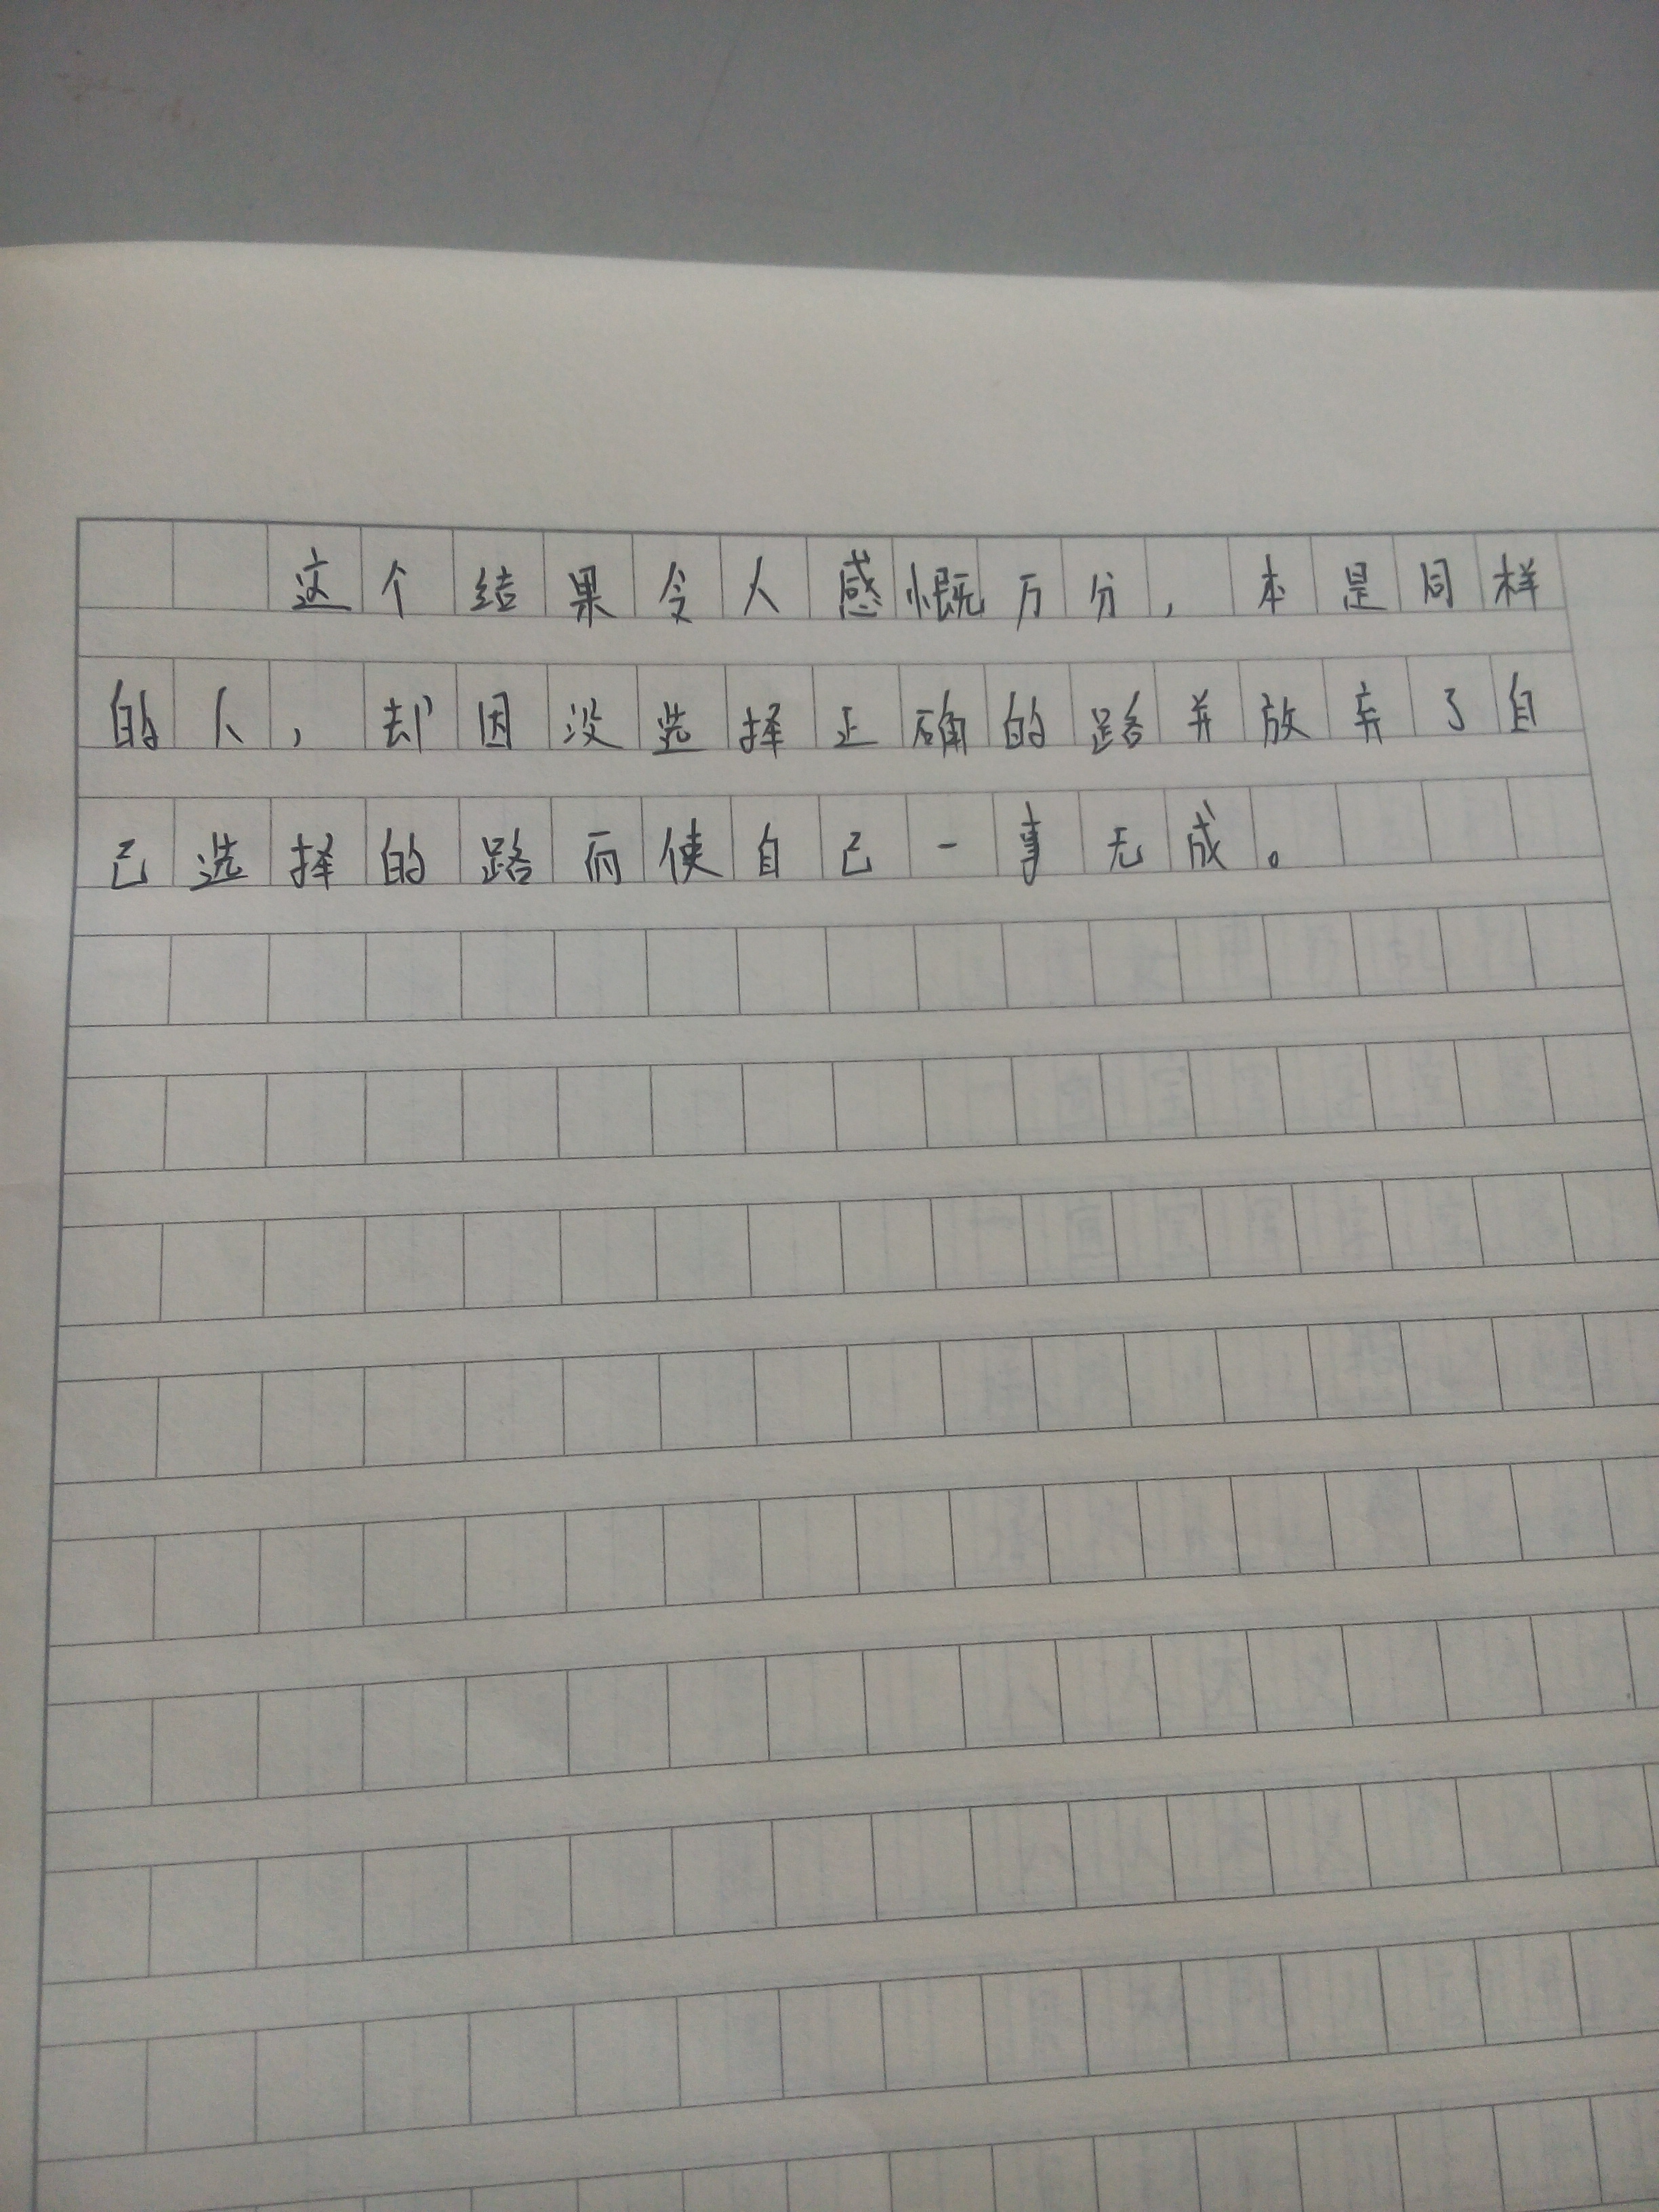 这个结果令人感慨万分，本是同样
的人，却因没选择正确的路并放弃了自
己选择的路而使自己一事无成。